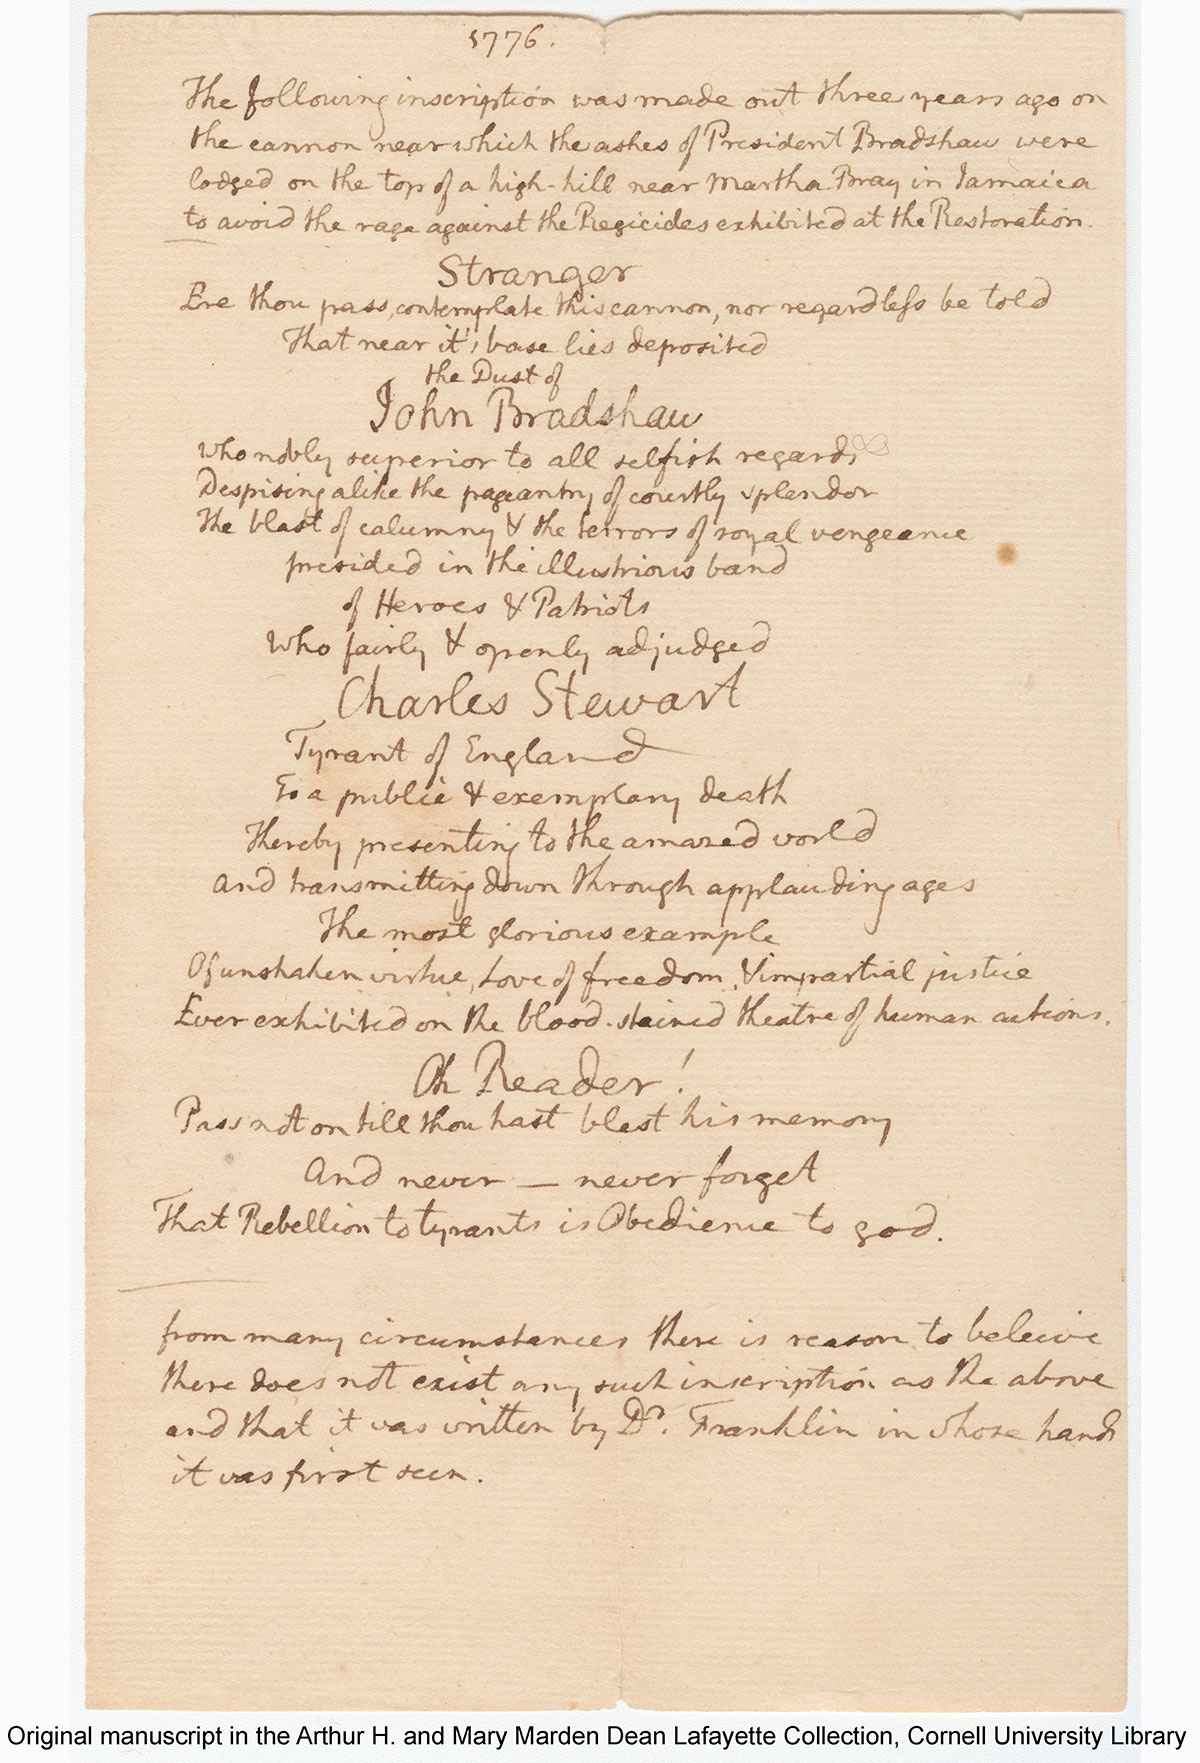 1776.
The following inscription was made out three years ago on
the cannon near which the ashes of President Bradshaw were
lodged on the top of a high-hill near Martha Bray in Jamaica
to avoid the rage against the Regicides exhibited at the Restoration.
Stranger
Ere thou pass, contemplate this cannon, nor regardless be told
That near it's base lies deposited
the Dust of
John Bradshaw
Who nobly superior to all selfish regards
Despising alike the pageantry of courtly splendor
The blast of calumny & the terrors of royal vengeance
presided in the illustrious band
of Heroes & Patriots
Who fairly & openly adjudged
Charles Stewart
Tyrant of England
To a public & exemplary death
Thereby presenting to the amazed world
And transmitting down through applauding ages
The most glorious example
Of unshaken virtue, Love of freedom, & impartial justice
Ever exhibited on the blood-stained theatre of human actions.
Oh Reader!
Pass not on till thou hast blest his memory
And never — never forget
That Rebellion to tyrants is Obedience to god.
from many circumstances there is reason to beleive
there does not exist any such inscription as the above
and that it was written by Dr. Franklin in whose hands
it was first seen.
Original manuscript in the Arthur H. and Mary Marden Dean Lafayette Collection, Cornell University Library